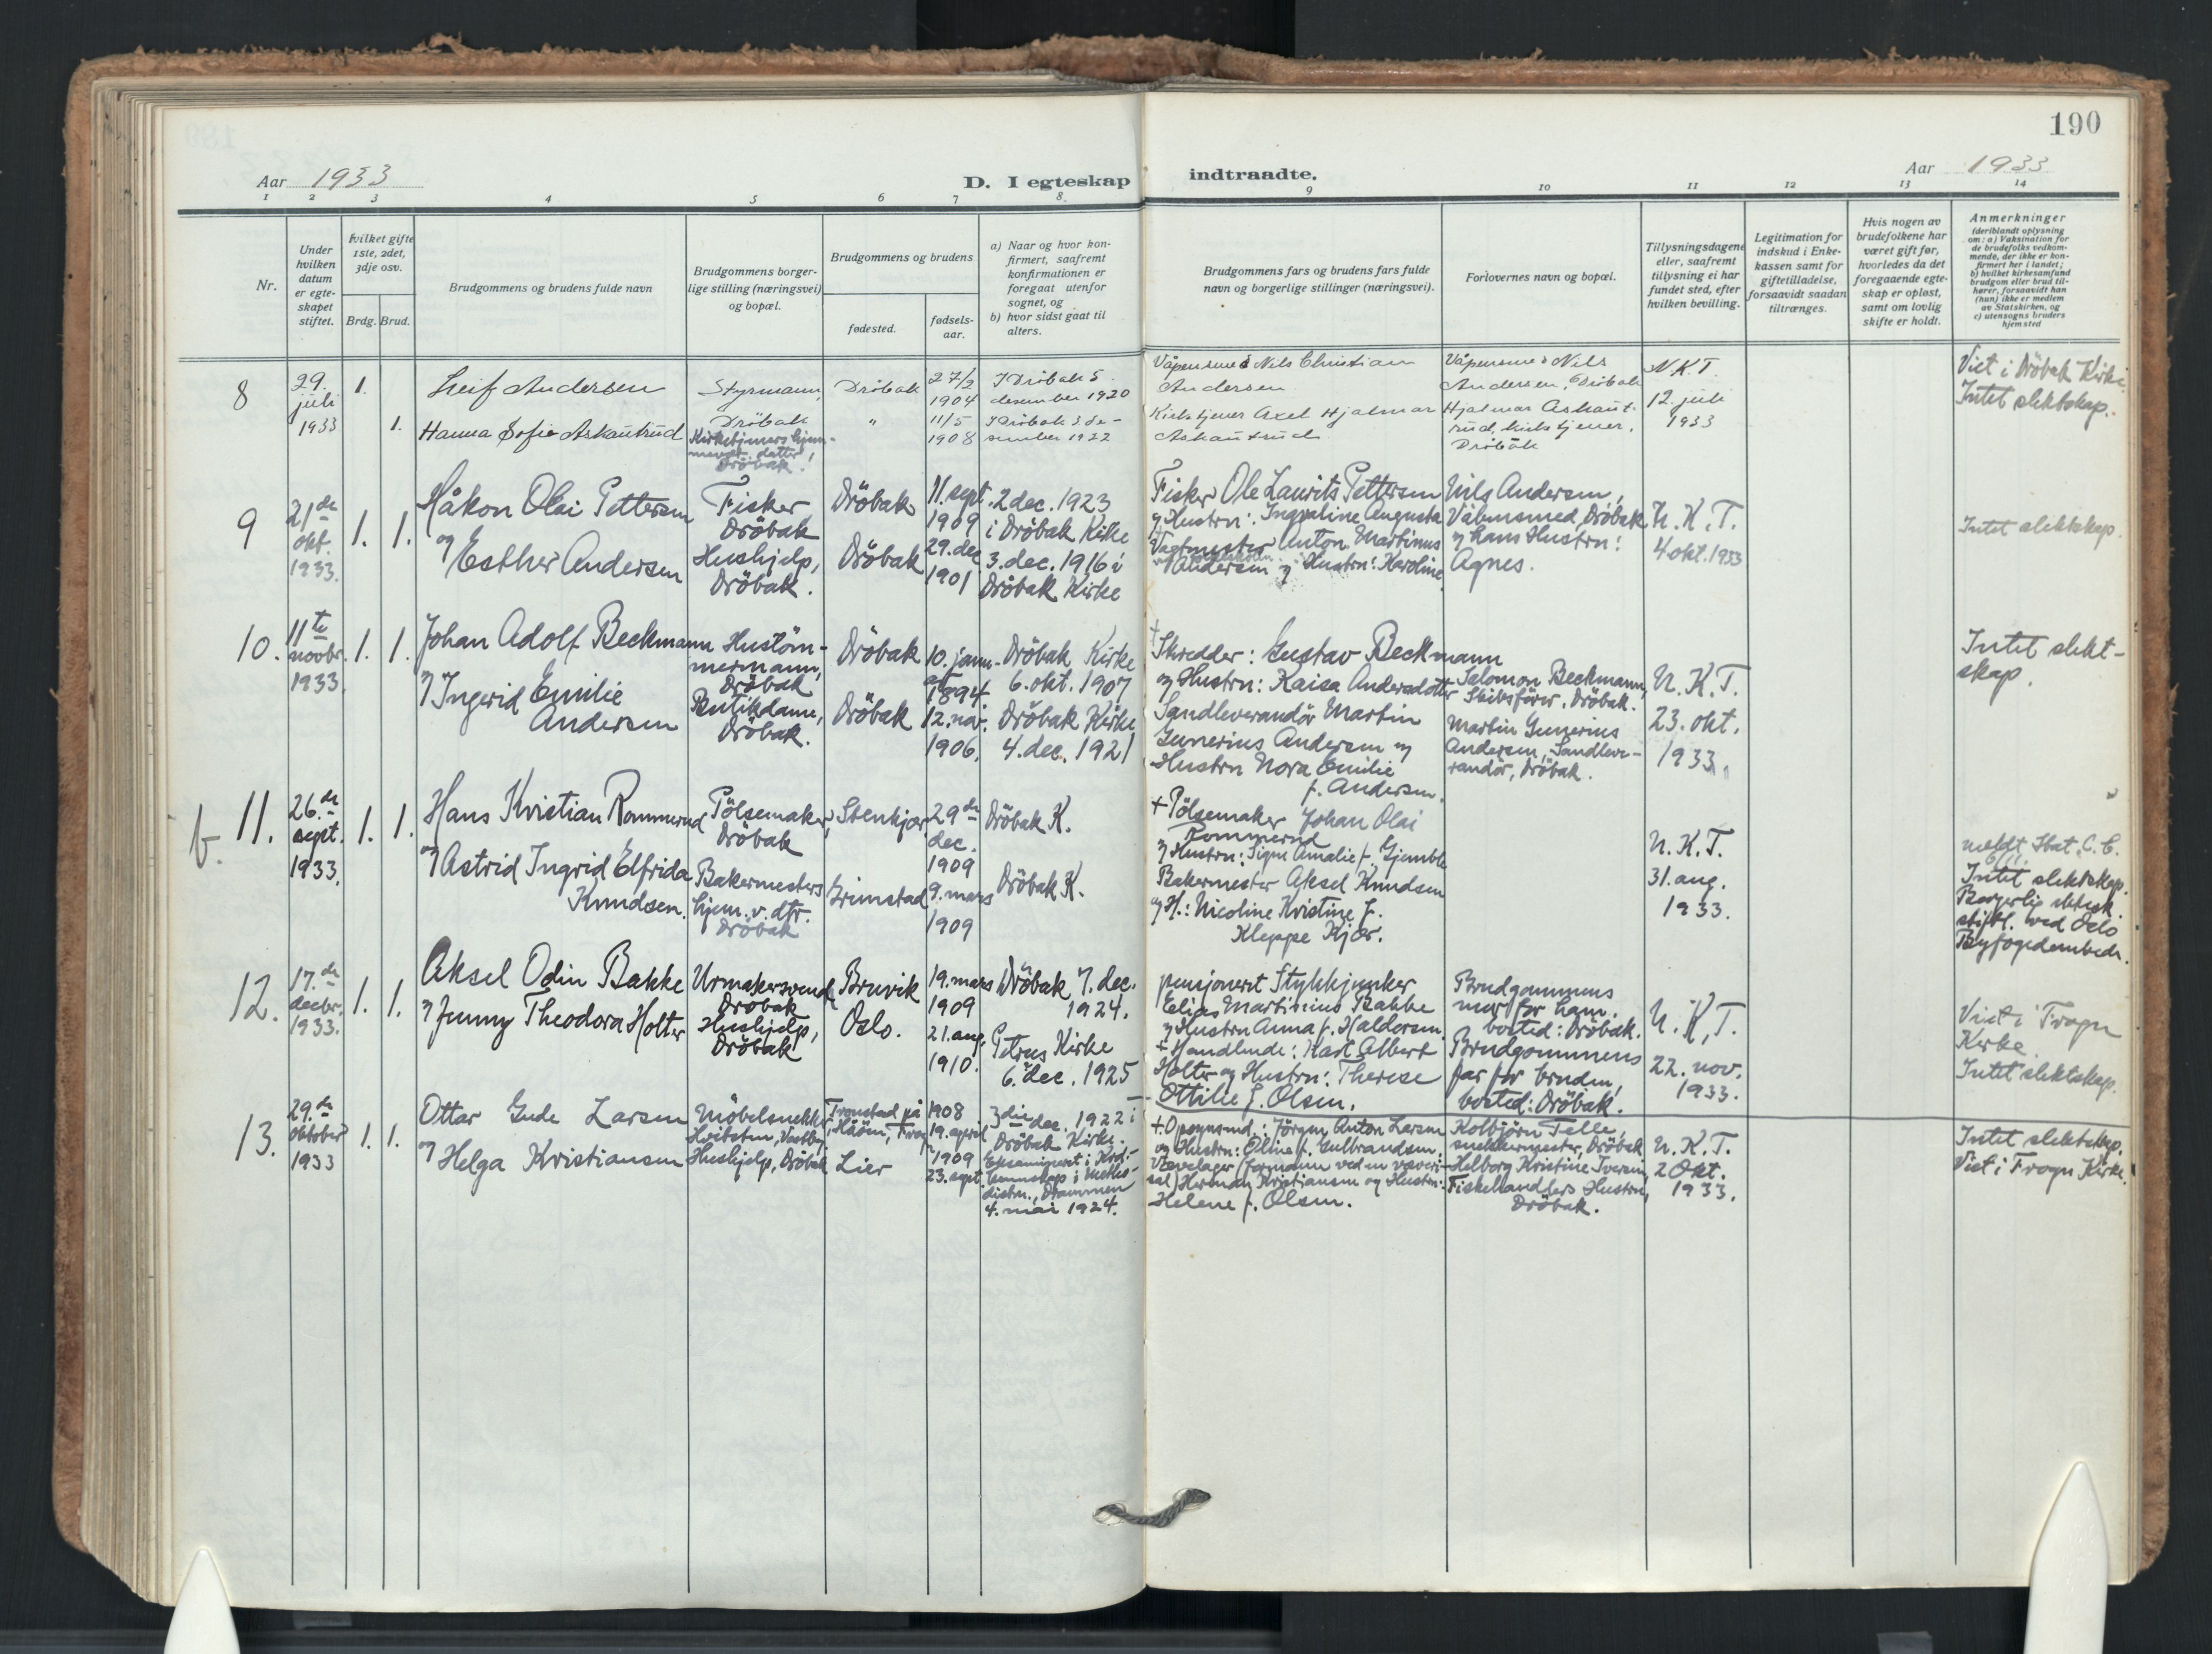 190
Aar 1933
D. I egteskap indtraadte.
Aar 1933
1 2 3 4 5 6 7 8. 9 10 11 12 13 14
Nr.
Under hvilken datum er egteskapet stiftet.
Hvilket gifte 1ste, 2det, 3dje osv.
Brdg. Brud.
Brudgommens og brudens fulde navn
Brudgommens borgerlige stilling (næringsvei) og bopæl.
Brudgommens og brudens
fødested.
fødselsaar.
a) Naar og hvor konfirmert, saafremt konfirmationen er foregaat utenfor sognet, og
b) hvor sidst gaat til alters.
Brudgommens fars og brudens fars fulde navn og borgerlige stillinger (næringsvei).
Forlovernes navn og bopæl.
Tillysningsdagene eller, saafremt tillysning ei har fundet sted, efter hvilken bevilling.
Legitimation for indskud i Enkekassen samt for giftetilladelse, forsaavidt saadan tiltrænges.
Hvis nogen av brudefolkene har været gift før, hvorledes da det foregaaende egteskap er opløst, samt om lovlig skifte er holdt.
Anmerkninger
(deriblandt oplysning om: a) Vaksination for de brudefolks vedkommende, der ikke er konfirmert her i landet;
b) hvilket kirkesamfund brudgom eller brud tilhører, forsaavidt han (hun) ikke er medlem av Statskirken, og
c) utensogns bruders hjemsted
8
29. juli 1933
1. 1.
Leif Andersen
Hanna Sofie Askautrud
Styrmann, Dröbak
Kirketjeners hjemmevær. datter, Dröbak.
Dröbak
"
27/2 1904
11/5 1908
I Dröbak 5 desember 1920
I Dröbak 3 desember 1922
Våpensmed Nils Christian Andersen
Kirketjener Axel Hjalmar Askautrud
Våpensmed Nils Andersen, Dröbak
Hjalmar Askautrud, kirketjener, Dröbak
N.K.T. 12. juli 1933
Viet i Dröbak Kirke.
Intet slektskap.
9
21de okt. 1933.
1. 1.
Håkon Olai Pettersen
og Esther Andersen
Fisker Dröbak
Hushjelp, Dröbak.
Dröbak
Dröbak
11. sept. 1909
29. dec 1901
2 dec. 1923 i Dröbak Kirke
3. dec. 1916 i Dröbak Kirke
Fisker Ole Laurits Pettersen
og Hustru: Ingvaline Augusta
Vagtmester Anton Martinus
Andersen og Hustru: Karoline
Nils Andersen, Våbensmed, Dröbak
og hans Hustru: Agnes.
N.K.T. 4 okt. 1933
Intet slektskap.
10.
11te novbr. 1933.
1. 1.
Johan Adolf Beckmann
og Ingerid Emilie Andersen
Hustömmermann, Dröbak
Butikdame, Dröbak.
Dröbak
Dröbak
10. januar 1894.
12. nov. 1906.
Dröbak Kirke 6. okt. 1907
Dröbak Kirke 4. dec. 1921
+ Skredder: Gustav Beckmann
og Hustru: Kaisa Andersdotter
Sandleverandör Martin
Gunerius Andersen og
Hustru Nora Emilie
f. Andersen.
Salomon Beckmann, Skibsförer, Dröbak.
Martin Gunerius Andersen, Sandleverandör, Dröbak.
N.K.T. 23. okt. 1933.
Intet slektskap.
b. 11.
26.de sept. 1933.
1. 1.
Hans Kristian Rommerud
og Astrid Ingrid Elfrida Knudsen.
Pölsemaker, Dröbak
Bakermesters hjem. v. dtr. Dröbak
Stenkjær
Grimstad
29de dec. 1909
9. mars 1909
Dröbak K.
Dröbak K.
+ Pölsemaker Johan Olai Rommerud
og Hustru: Signe Amalie f. Gjemble
Bakermester Aksel Knudsen
og H.: Nicoline Kristine f.
Kleppe Kjær.
N.K.T. 31. aug. 1933.
meldt Stat. C. B. 6/11.
Intet slektskap.
Borgerlig ektesk. stiftl. ved Oslo Byfogedembede.
12.
17.de decbr. 1933.
1. 1.
Aksel Odin Bakke
og Jenny Theodora Holter
Urmakersvend Dröbak
Hushjelp, Dröbak
Bruvik
Oslo.
19. mars 1909
21. aug. 1910.
Dröbak 7. dec. 1924.
Petrus Kirke 6. dec. 1925
pensjonert Stykkjunker
Elias Martinius Bakke
og Hustru Anna f. Haldorsen.
+ Handlende: Karl Albert
Holter og Hustru: Therese
Ottilie f. Olsen.
Brudgommens mor for ham. bosted: Dröbak.
Brudgommens far for bruden, bosted: Dröbak.
N.K.T. 22. nov. 1933.
Viet i Frogn Kirke.
Intet slektskap.
13.
29.de Oktober 1933
1. 1.
Ottar Gude Larsen
og Helga Kristiansen
Möbelsnekker, Hvitsten, Vestby
Hushjelp, Dröbak
Tronstad på Håöen, Frogn
Lier
1908 19. april
1909 23. sept.
3die dec. 1922 i Dröbak Kirke.
Eksaminert i Krd.kunnskap i Metodistkn., Drammen 4. mai 1924.
+ Opsynsmd.: Jörgen Anton Larsen
og Hustru: Oline f. Gulbrandsen.
Herman Kristiansen og Hustru:
Helene f. Olsen.
Kolbjörn Telle, snekkermester, Dröbak
Helborg Kristine Iversen, Fiskehandlers Hustru, Dröbak.
N.K.T. 2 Okt. 1933.
Intet slektskap.
Viet i Frogn Kirke.